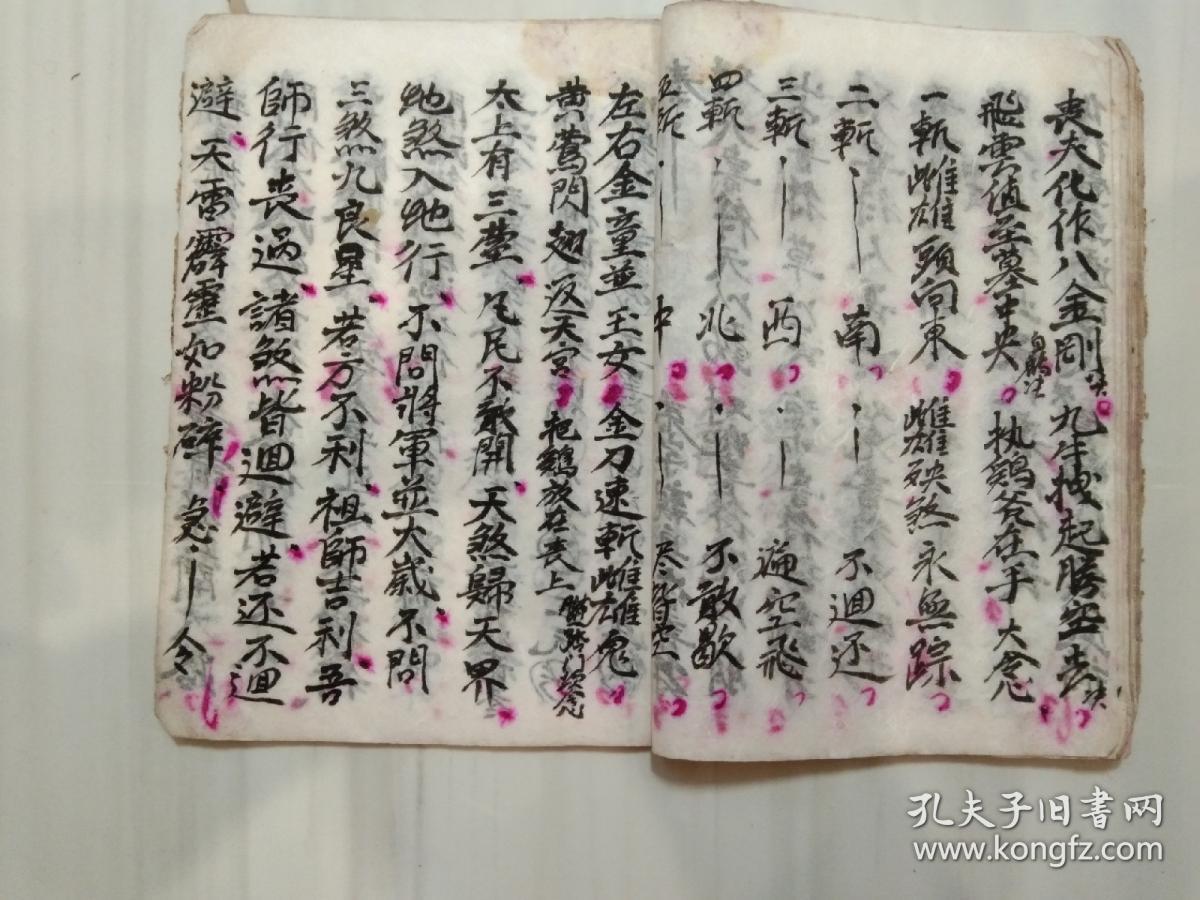 丧夫化作八金剛 九牛拽起腾空去
飛雲值至墓中央 执鷄斧在手 大念
一斬雌雄頭向東 雌雄殃煞永無踪
二斬 南 不迴还
三斬 西 遍空飛
四斬 北 不敢歇
五斬 中
左右金童並玉女 金刀速斬雌雄鬼
黄鶯閃翅返天宮 把鷄放在丧上
太上有三 不敢開 天煞歸天界
地煞入地行 不問將軍並大歲 不問
三煞九良星 若方不利 祖師吉利 吾
師行丧過 諸煞皆迴避 若还不迴
避 天雷霹靂如粉碎 急 令
孔夫子旧书网
www.kongfz.com